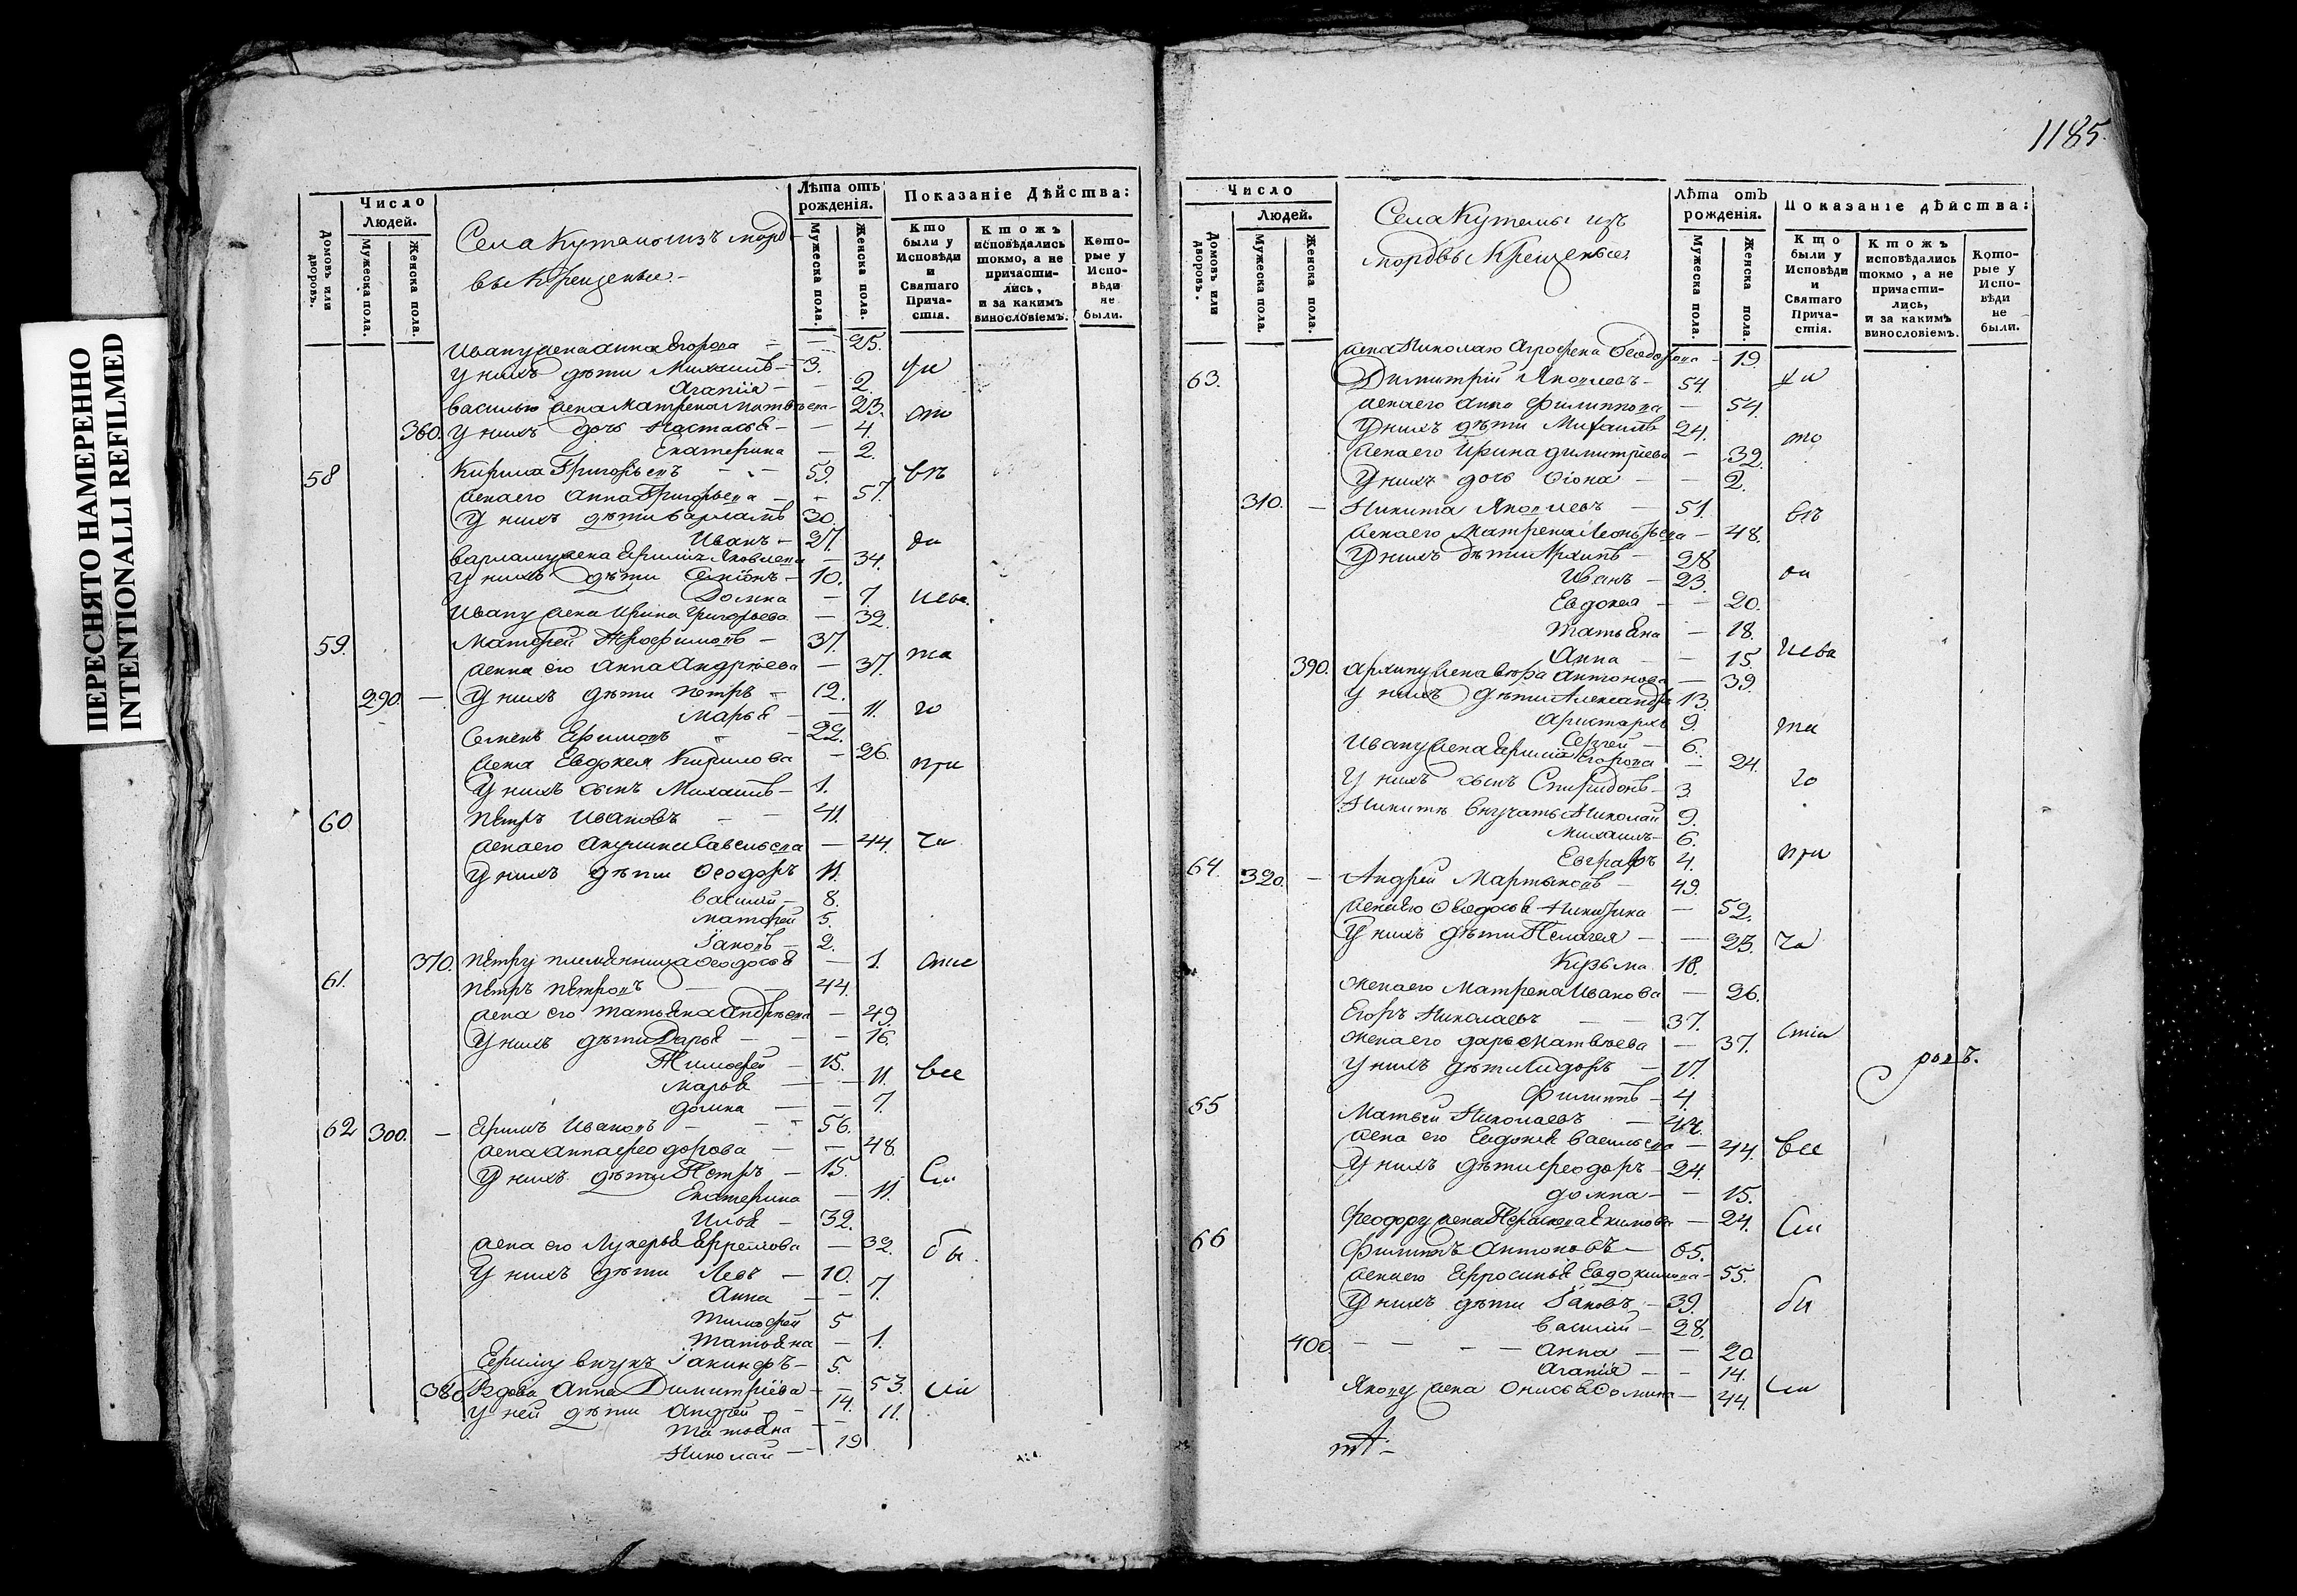 ПЕРЕСНЯТО НАМЕРЕННО
INTENTIONALLI REFILMED
Число
Людей.
Домовъ или дворовъ.
Мужеска пола.
Женска пола.
Села Кутемы изъ морд
вы Крещеные
Лѣта отъ рожденія.
Мужеска пола.
Женска пола.
Показаніе Дѣйства:
Кто были у Исповѣди и Святаго Прича- стія.
Ктожъ исповѣдались токмо, а не причасти- лись, и за какимъ винословіемъ.
Кото- рые у Испо- вѣди не были.
Ивану жена Анна Егорова — 25.
У нихъ дѣти Михаилъ — 3.
Агапія — 2.
Василью жена Матрена Матвѣева — 23.
360. У нихъ дочь Настасья — 4.
Екатерина — 2.
58 Кирила Григорьевъ — 59.
жена его Анна Григорьева — 57.
У нихъ дѣти Варламъ 30.
Иванъ — 27.
Варламу жена Яковлева — 34.
У нихъ дѣти Семіонъ — 10.
Домна — 7
Ивану жена Ирина Григорьева — 32.
59. Матфей — 37.
жена его Анна Андріева — 37.
290. — У нихъ дѣти Петръ — 12.
Марья — 11.
Семенъ Ефимовъ — 22.
жена Евдокея Кирилова — 26.
У нихъ сынъ Михаилъ — 1.
60 Петръ Ивановъ — 41.
жена его Акулина Савельева — 44.
У нихъ дѣти Ѳеодоръ 11.
Василій — 8.
Матфей 5.
Іаковъ — 2.
370. Петру племянница Ѳеодосья — 1.
61. Петръ Петровъ — 44.
жена его Татьяна Андрѣева — 49.
У нихъ дѣти Дарья — 16.
Тимофей — 15.
Марья — 11.
Домна — 7.
62 300. — Ефимъ Ивановъ — 56.
жена Анна Феодорова — 48.
У нихъ дѣти Петръ — 15.
Екатерина — 11.
Илья — 32.
жена его Лукерья Ефремова — 32.
У нихъ дѣти Левъ — 10.
Анна — 7.
Тимофей 5
Татьяна — 1.
Ефиму внукъ Іакинфъ — 5.
380 Вдова Анна Димитріева — 53.
У ней дѣти Андрей — 14.
Татьяна — 11.
Николай — 19
1185.
Число
Людей.
Домовъ или дворовъ.
Мужеска пола.
Женска пола.
Села Кутемы изъ
мордвы Крещеные
Лѣта отъ рожденія.
Мужеска пола.
Женска пола.
Показаніе дѣйства:
Кто были у Исповѣди и Святаго Прича- стія.
Ктожъ исповѣдались токмо, а не причасти- лись, и за какимъ винословіемъ.
Кото- рые у Испо- вѣди не были.
жена Николаю Агрофена Ѳеодорова — 19.
63. Димитрій Яковлевъ — 54.
жена его Анна Филиппова — 54.
У нихъ дѣти Михаилъ 24.
жена его Ирина Димитріева — 32.
У нихъ дочь — 2.
310. — Никита Яковлевъ — 51.
жена его Матрена Леонтьева — 48.
У нихъ дѣти Архипъ — 28.
Иванъ — 23.
Евдокея — 20.
Татьяна — 18.
Анна — 15.
390. Архипу жена Вѣра Антонова — 39.
У нихъ дѣти Александръ 13.
Аристархъ 9.
Сергей — 6.
Ивану жена Егорова — 24.
У нихъ сынъ Спиридонъ — 3.
Никитѣ внучаты Николай 9.
Михаилъ — 6.
Евграфъ 4.
64. 320. — Андрей Мартыновъ — 49.
жена его Ѳеодосья Никитина — 52.
У нихъ дѣти Пелагея — 23.
Кузьма 18.
жена его Матрена Иванова — 26.
Егоръ Николаевъ — 37.
жена его Дарья Матвѣева — 37.
У нихъ дѣти Сидоръ — 17.
Филиппъ — 4.
65 Матвѣй Николаевъ — 44.
жена его Евдокея Васильева — 44.
У нихъ дѣти Феодоръ — 24.
Домна — 15.
Феодору жена Екимова — 24.
66 Филиппъ Антоновъ — 65.
жена его Ефросинья Евдокимова — 55.
У нихъ дѣти Іаковъ — 39.
Василій — 28.
400. — Анна — 20
Агапія — 14.
Якову жена Онисья — 44.